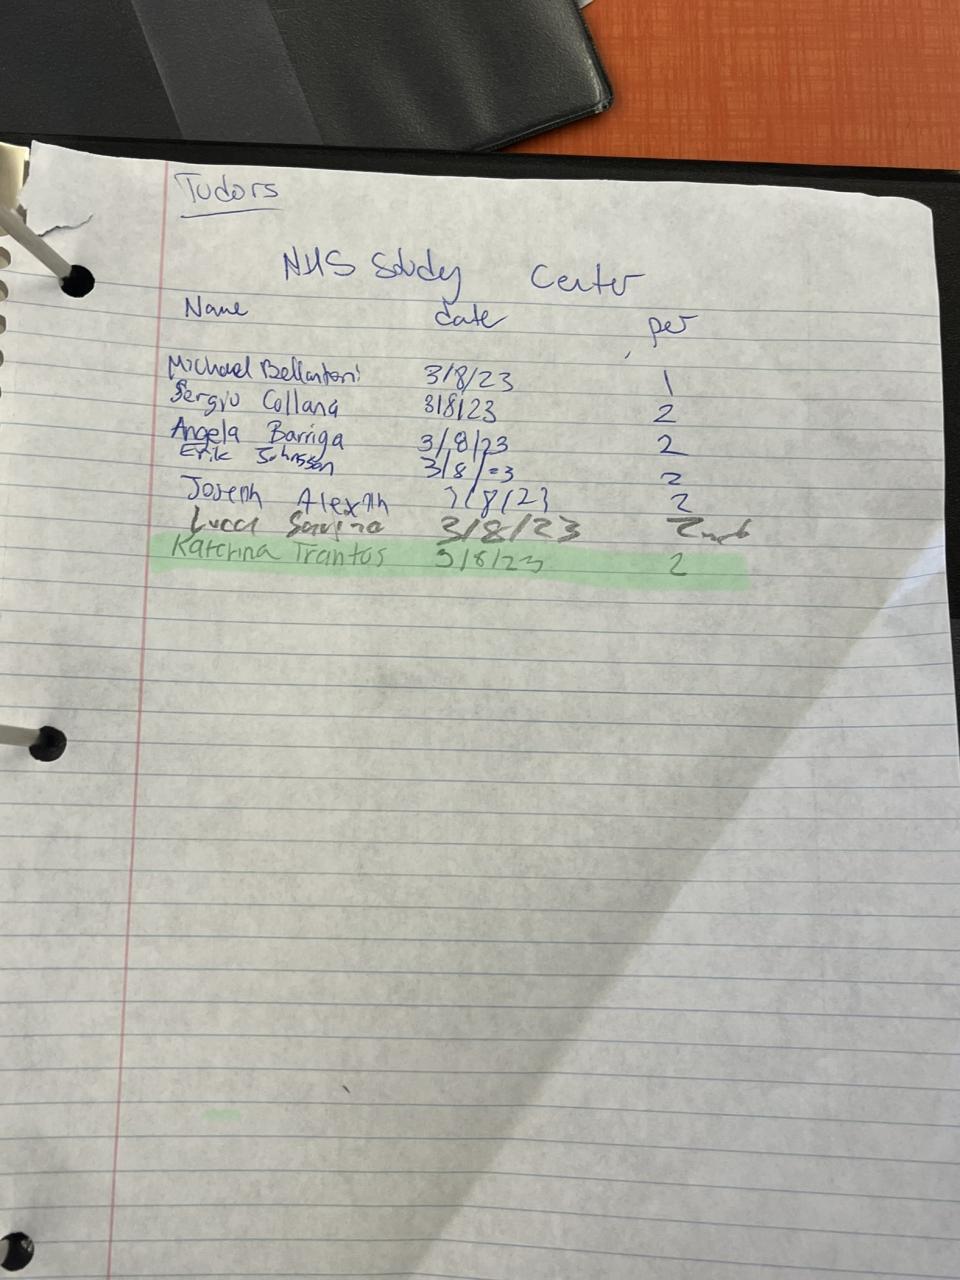 Tudors
NHS Study Center
Name date per
Michael Bellantoni 3/8/23 1
Sergio Collana 3/8/23 2
Angela Barriga 3/8/23 2
Erik Johnson 3/8/ 2
Joseph 3/8/23 2
Lucca 3/8/23
Katerina Trantos 3/8/23 2